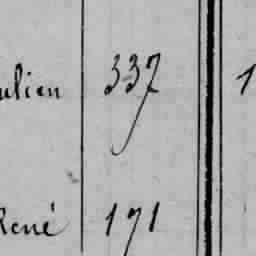 ulien 337 1
René 171